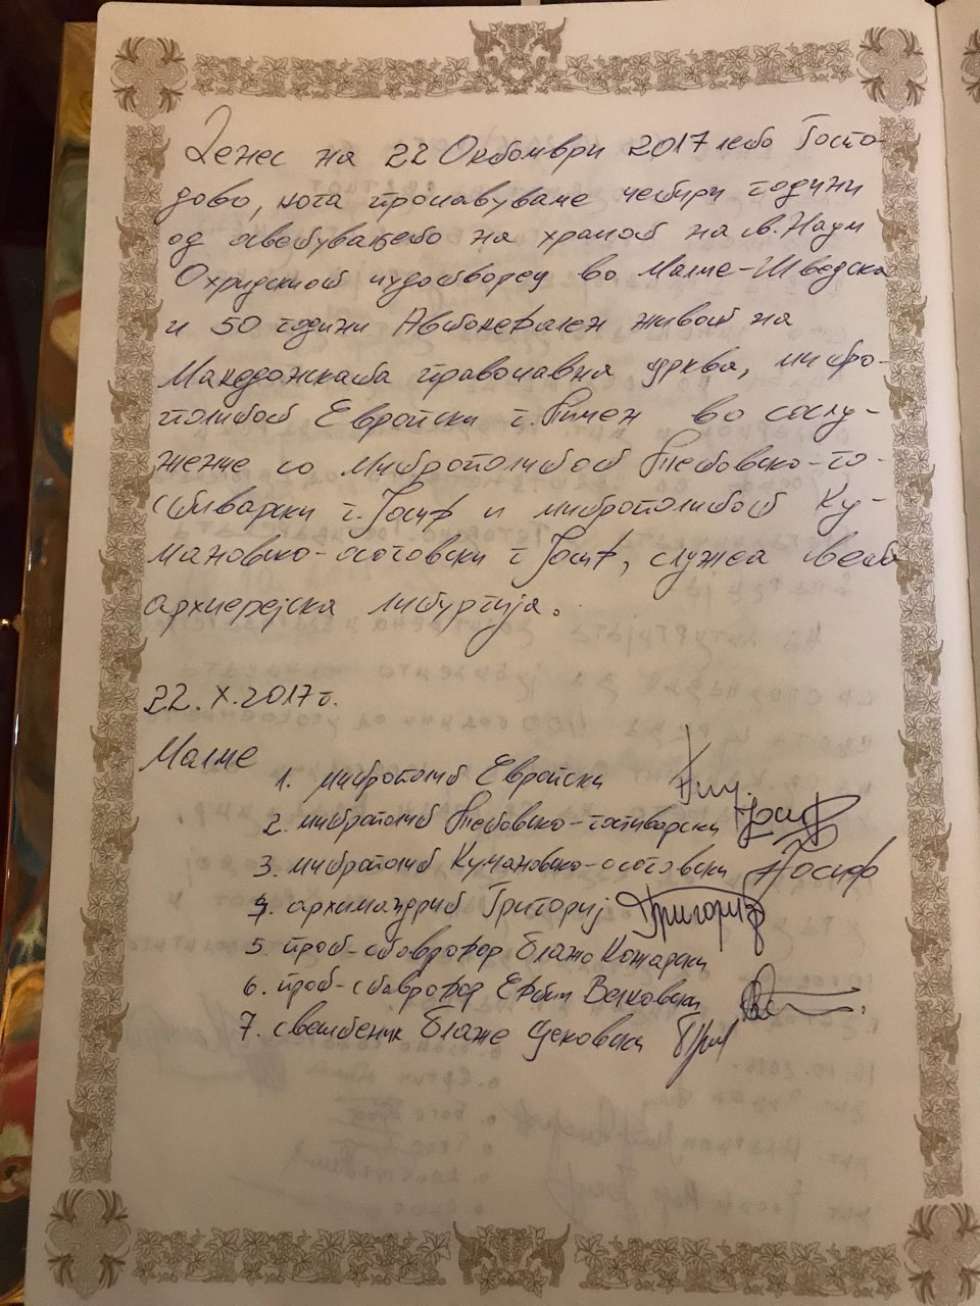 Денес на 22 Октомври 2017 лето Госпо-
дово, кога прославуваме четири години
од осветувањето на храмот на св. Наум
Охридскиот чудотворец во Малме-Шведска
и 50 години Автокефален живот на
Македонската православна црква, митро-
политот Европски г. Пимен во сослу-
жение со митрополитот Тетовско-го-
стиварски г. Јосиф и митрополитот Ку-
мановско-осоговски г Јосиф, служеа света
архиерејска литургија.
22.X.2017 г.
Малме
1. митрополит Европски Пим.
2. митрополит Тетовско-гостиварски Јосиф
3. митрополит Кумановско-осоговски Јосиф
4. архимандрит Григориј Григориј
5. прот-ставрофор Блажо Кожарски
6. прот-ставрофор Ефтим Велковски
7. свештеник Блаже Цековски